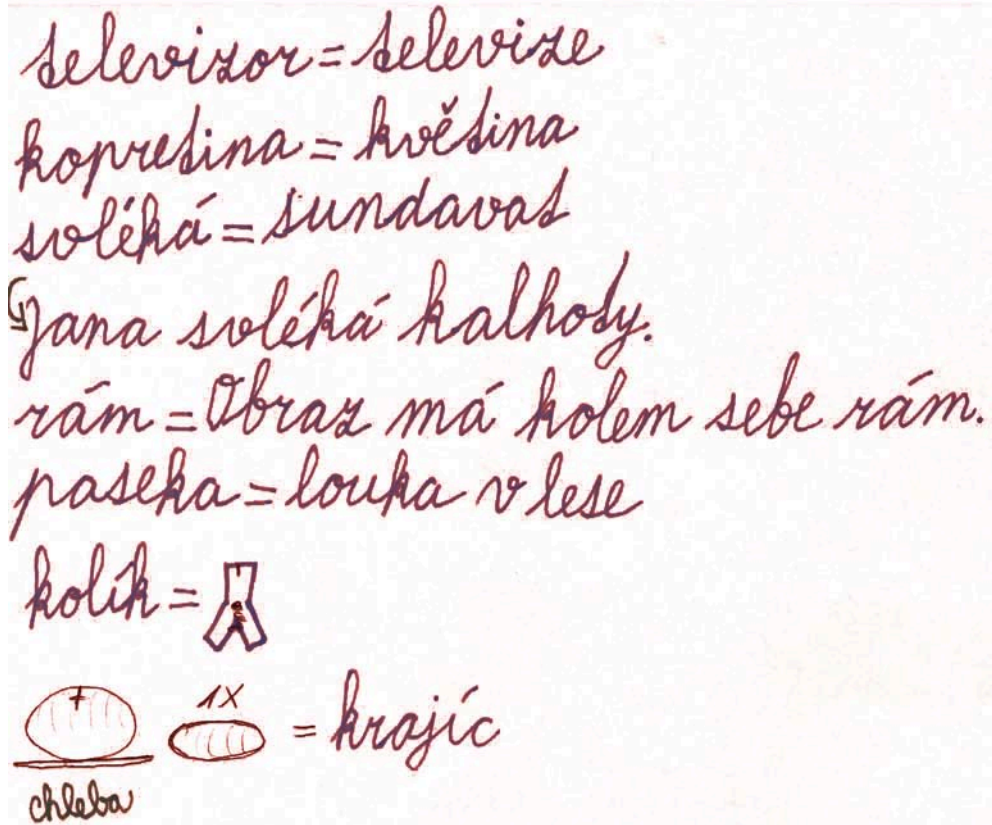 televizor = televize
kopretina = květina
svléká = sundavat
Jana svléká kalhoty.
rám = Obraz má kolem sebe rám.
paseka = louka v lese
kolík =
1X
= krajíc
chleba